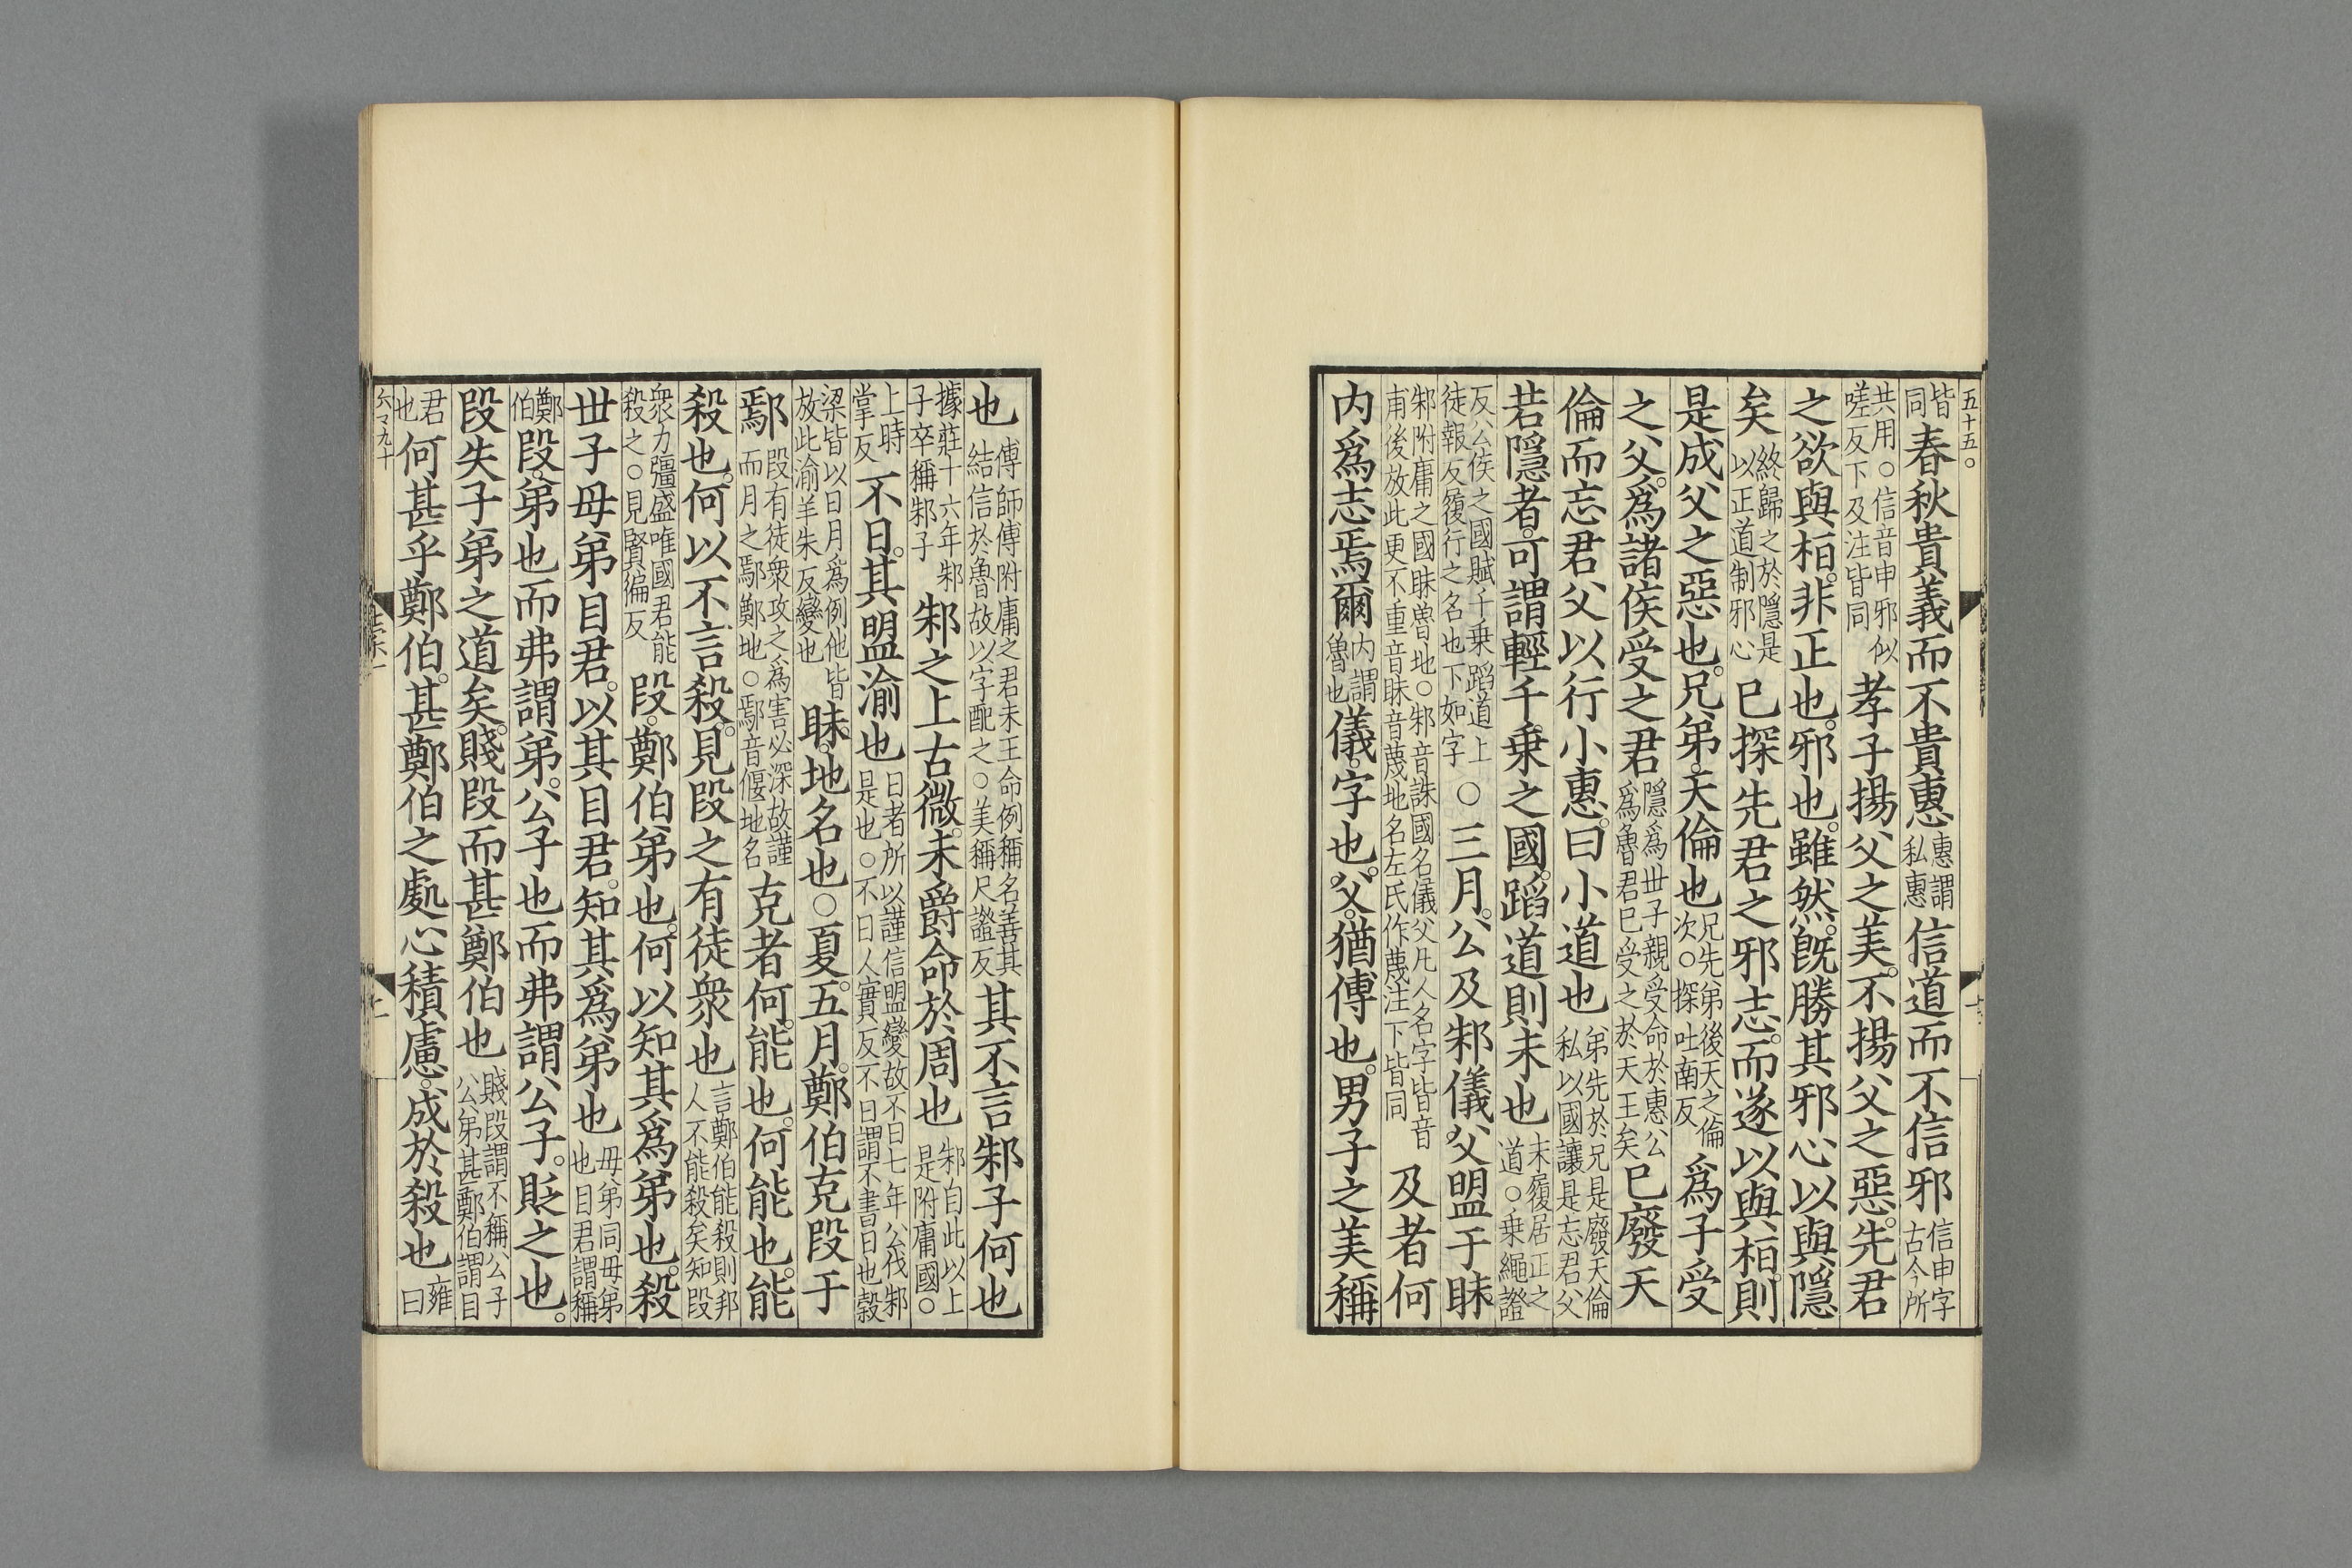 五十五。
皆同春秋貴義而不貴惠惠謂私惠信道而不信邪信申字古今所
共用○信音申邪似嗟反下及注皆同孝子揚父之美。不揚父之惡。先君
之欲與桓。非正也。邪也。雖然。旣勝其邪心以與隱
矣終歸之於隱是以正道制邪心已探先君之邪志。而遂以與桓。則
是成父之惡也。兄弟。天倫也兄先弟後天之倫次○探吐南反爲子受
之父。爲諸侯受之君隱爲世子親受命於惠公爲魯君已受之於天王矣已廢天
倫而忘君父以行小惠。曰小道也弟先於兄是廢天倫私以國讓是忘君父
若隱者。可謂輕千乗之國。蹈道則未也未履居正之道○乗繩證
反公侯之國賦千乗蹈道上徒報反履行之名也下如字○三月。公及邾儀父盟于眛
邾附庸之國眛魯地○邾音誅國名儀父凡人名字皆音甫後放此更不重音眛音蔑地名左氏作蔑注下皆同及者何
内爲志焉爾内謂魯也儀。字也。父。猶傅也。男子之美稱
也傅師傅附庸之君未王命例稱名善其結信於魯故以字配之○美稱尺證反其不言邾子何也
據莊十六年邾子卒稱邾子邾之上古微。未爵命於周也邾自此以上是附庸國○
上時掌反不日。其盟渝也日者所以謹信盟變故不日七年公伐邾是也○不日人實反不日謂不書日也穀
梁皆以日月爲例他皆放此渝羊朱反變也眛。地名也○夏。五月。鄭伯克段于
鄢段有徒衆攻之爲害必深故謹而月之鄢鄭地○鄢音偃地名克者何。能也。何能也。能
殺也。何以不言殺。見段之有徒衆也言鄭伯能殺則邦人不能殺矣知段
衆力彊盛唯國君能殺之○見賢徧反段。鄭伯弟也。何以知其爲弟也。殺
世子母弟目君。以其目君。知其爲弟也母弟同母弟也目君謂稱
鄭伯段。弟也而弗謂弟。公子也而弗謂公子。貶之也。
段失子弟之道矣。賤段而甚鄭伯也賤段謂不稱公子公弟甚鄭伯謂目
君也何甚乎鄭伯。甚鄭伯之處心積慮。成於殺也雍曰